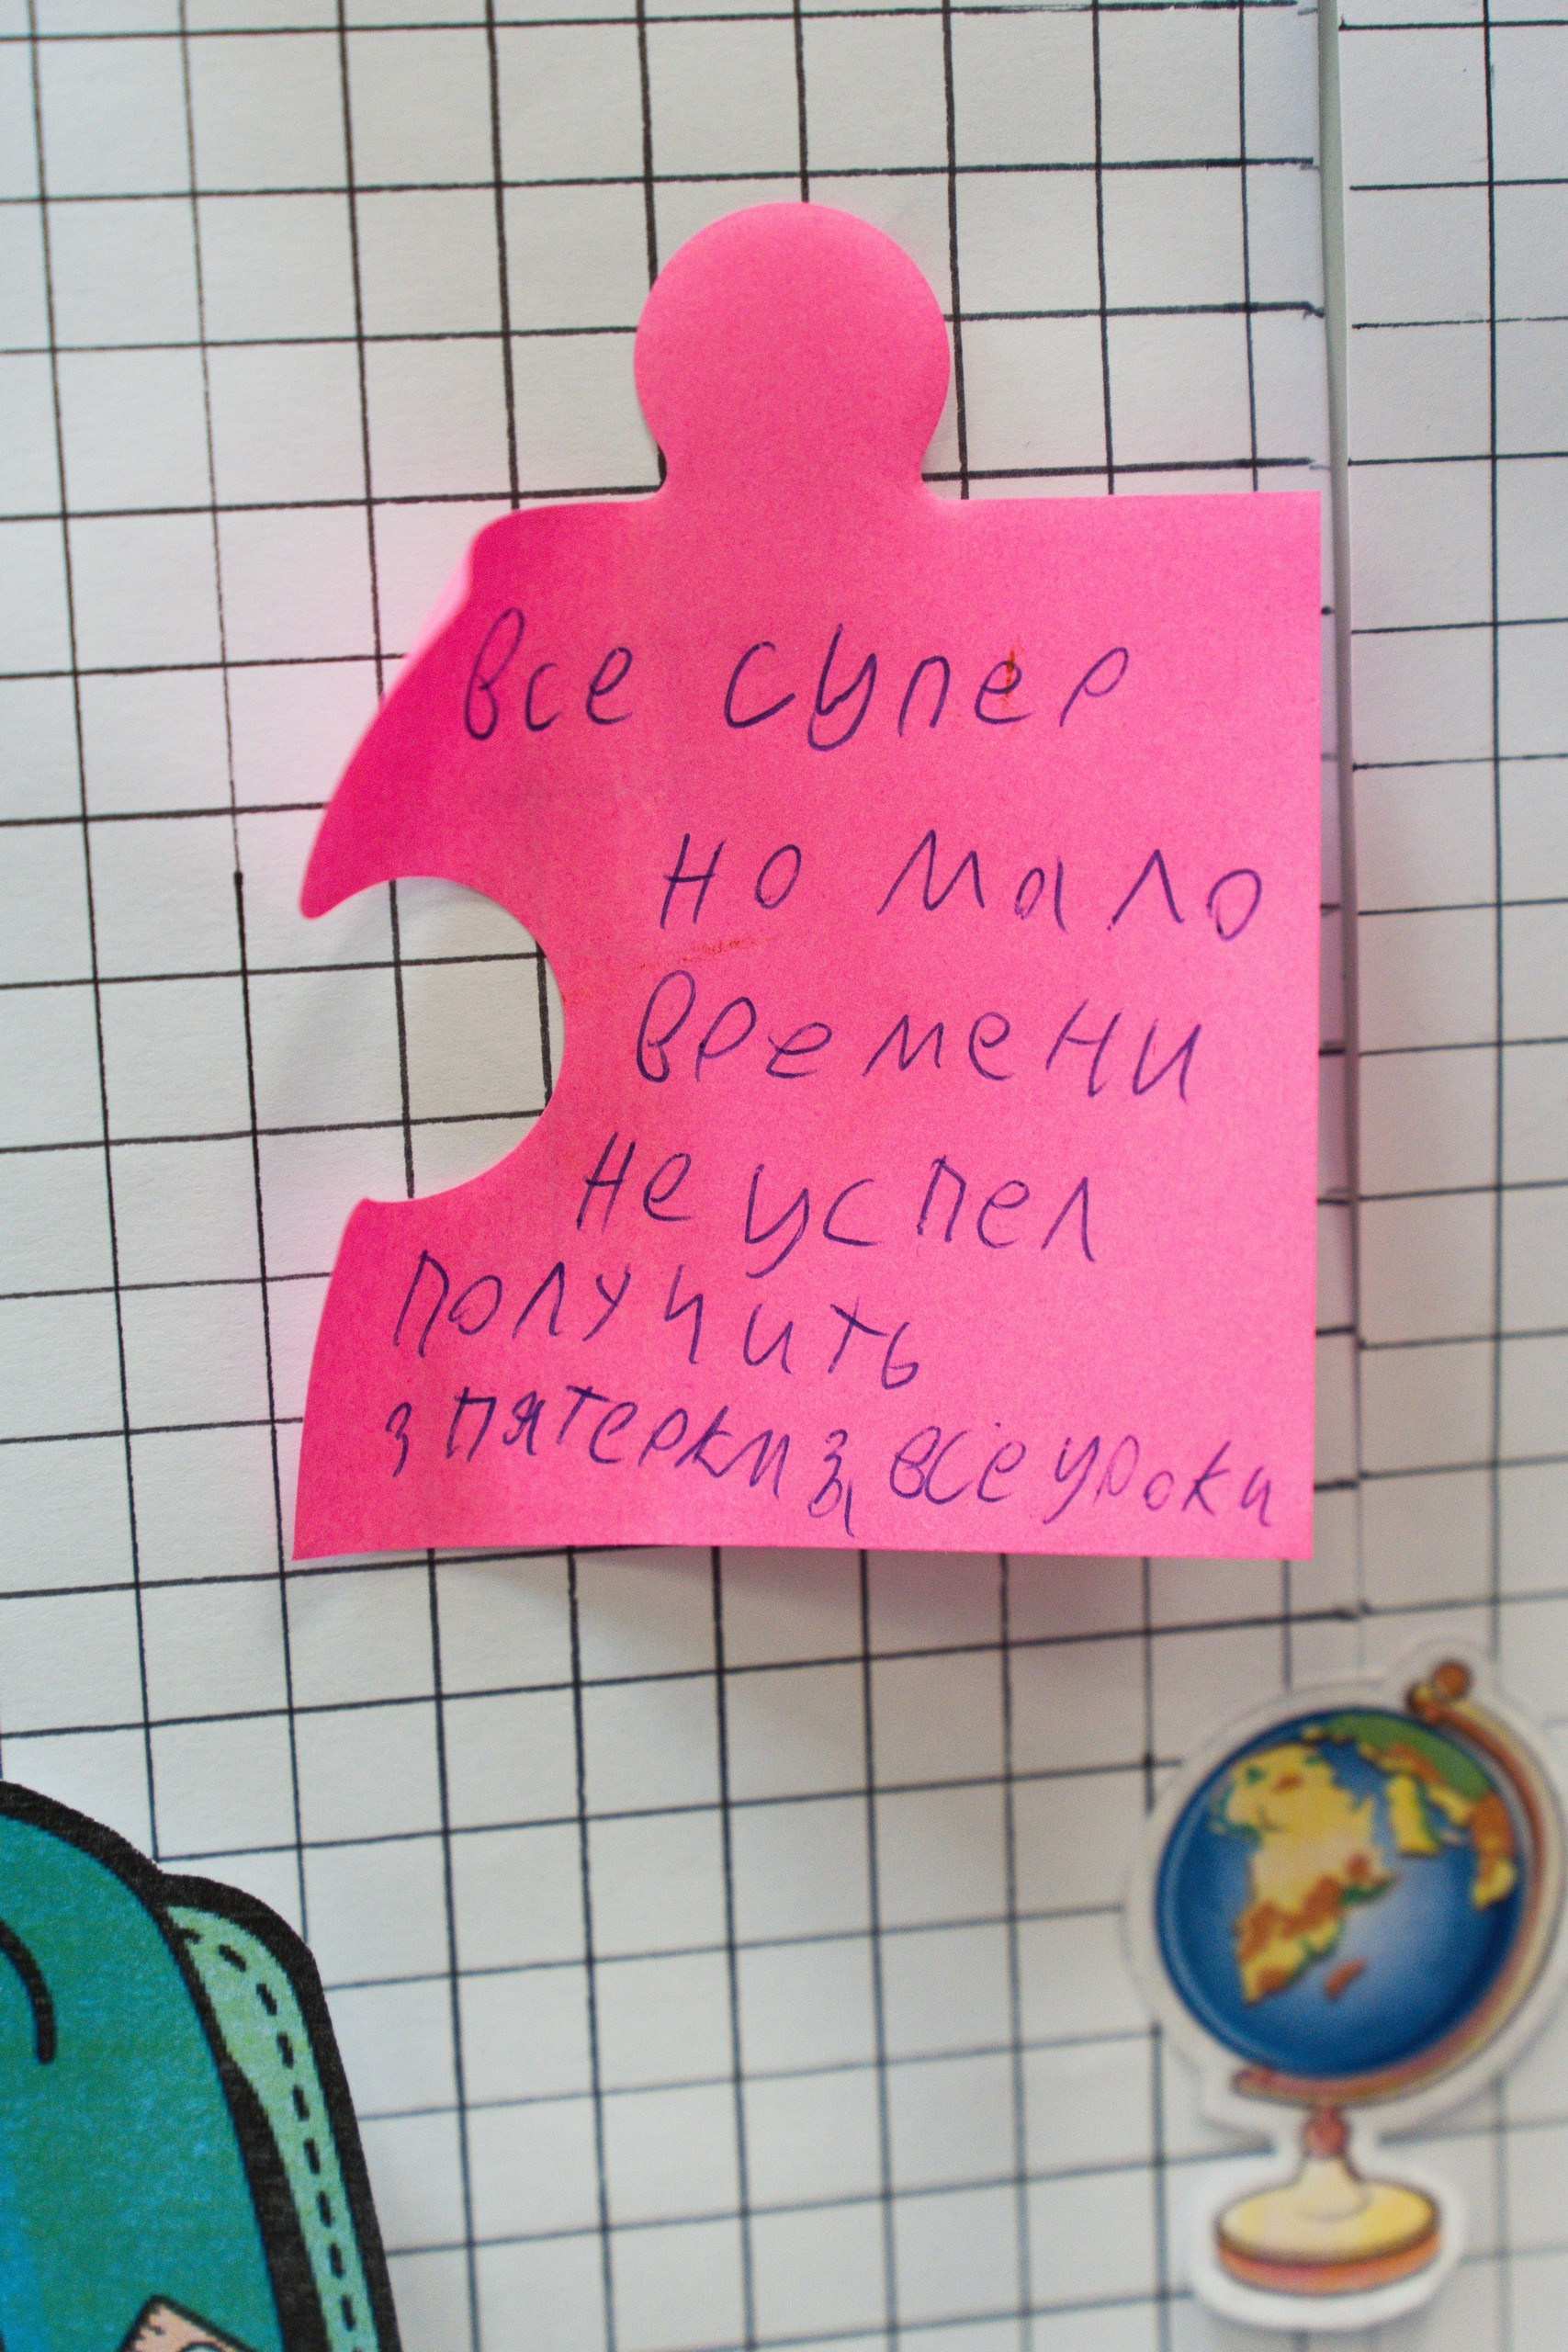 все супер
но мало
времени
не успел
получить
3 пятерки за все уроки